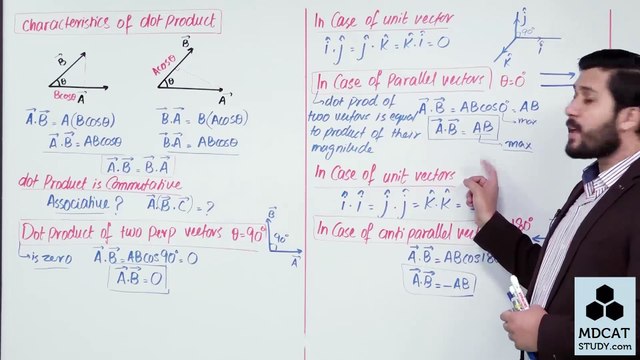 Characteristics of dot product
B⃗
θ
Bcosθ
A⃗
B⃗
Acosθ
θ
A⃗
A⃗.B⃗ = A(Bcosθ)
A⃗.B⃗ = ABcosθ
B⃗.A⃗ = B(Acosθ)
B⃗.A⃗ = ABcosθ
A⃗.B⃗ = B⃗.A⃗
dot Product is Commutative
Associative? A⃗(B⃗.C⃗) = ?
Dot product of two perp vectors θ=90°
is zero A⃗.B⃗ = ABcos90° = 0
A⃗.B⃗ = 0
B⃗
90°
A⃗
In Case of unit vector
î.ĵ = ĵ.k̂ = k̂.î = 0
ĵ
90°
î
k̂
In Case of Parallel vectors θ=0°
dot prod of
two vectors is equal
to product of their
magnitude
A⃗.B⃗ = ABcos0° = AB
max
A⃗.B⃗ = AB
max
In Case of unit vectors
î.î = ĵ.ĵ = k̂.k̂ =
In Case of anti parallel
A⃗.B⃗ = ABcos18
A⃗.B⃗ = -AB
MDCAT
STUDY.com